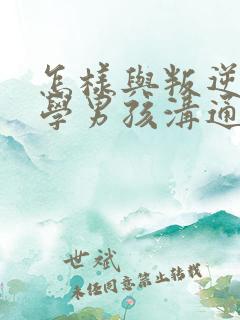 怎樣與叛逆
學男孩溝通
世斌
未任同意禁止轉載